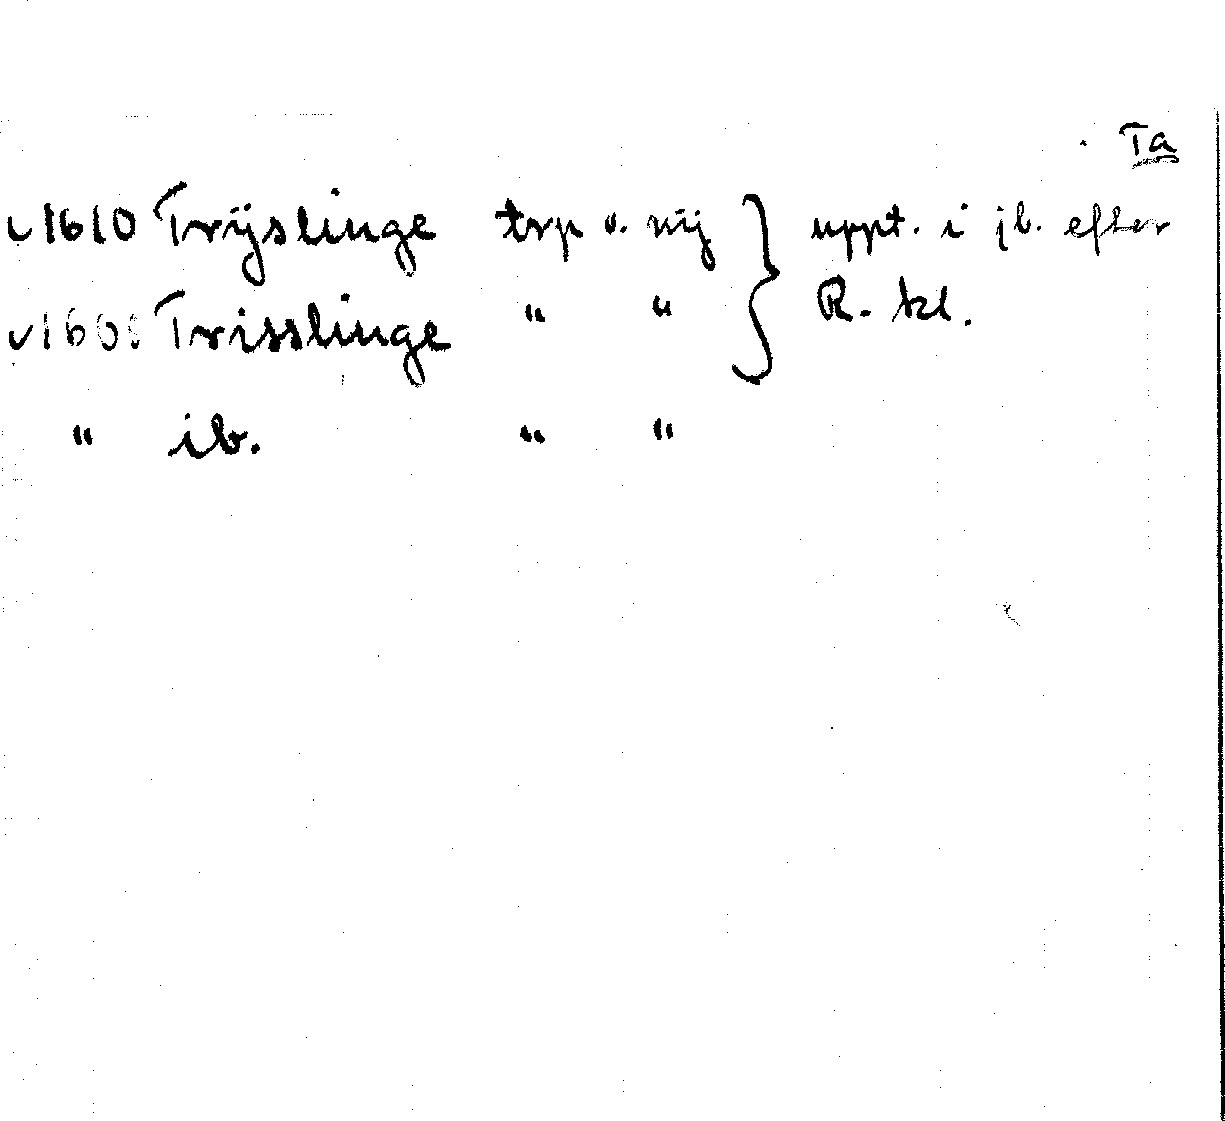 Ta
v1610 Trÿslinge trp v. nij } uppt. i jb. efter
Trisslinge " " R. kl.
" ib. " "